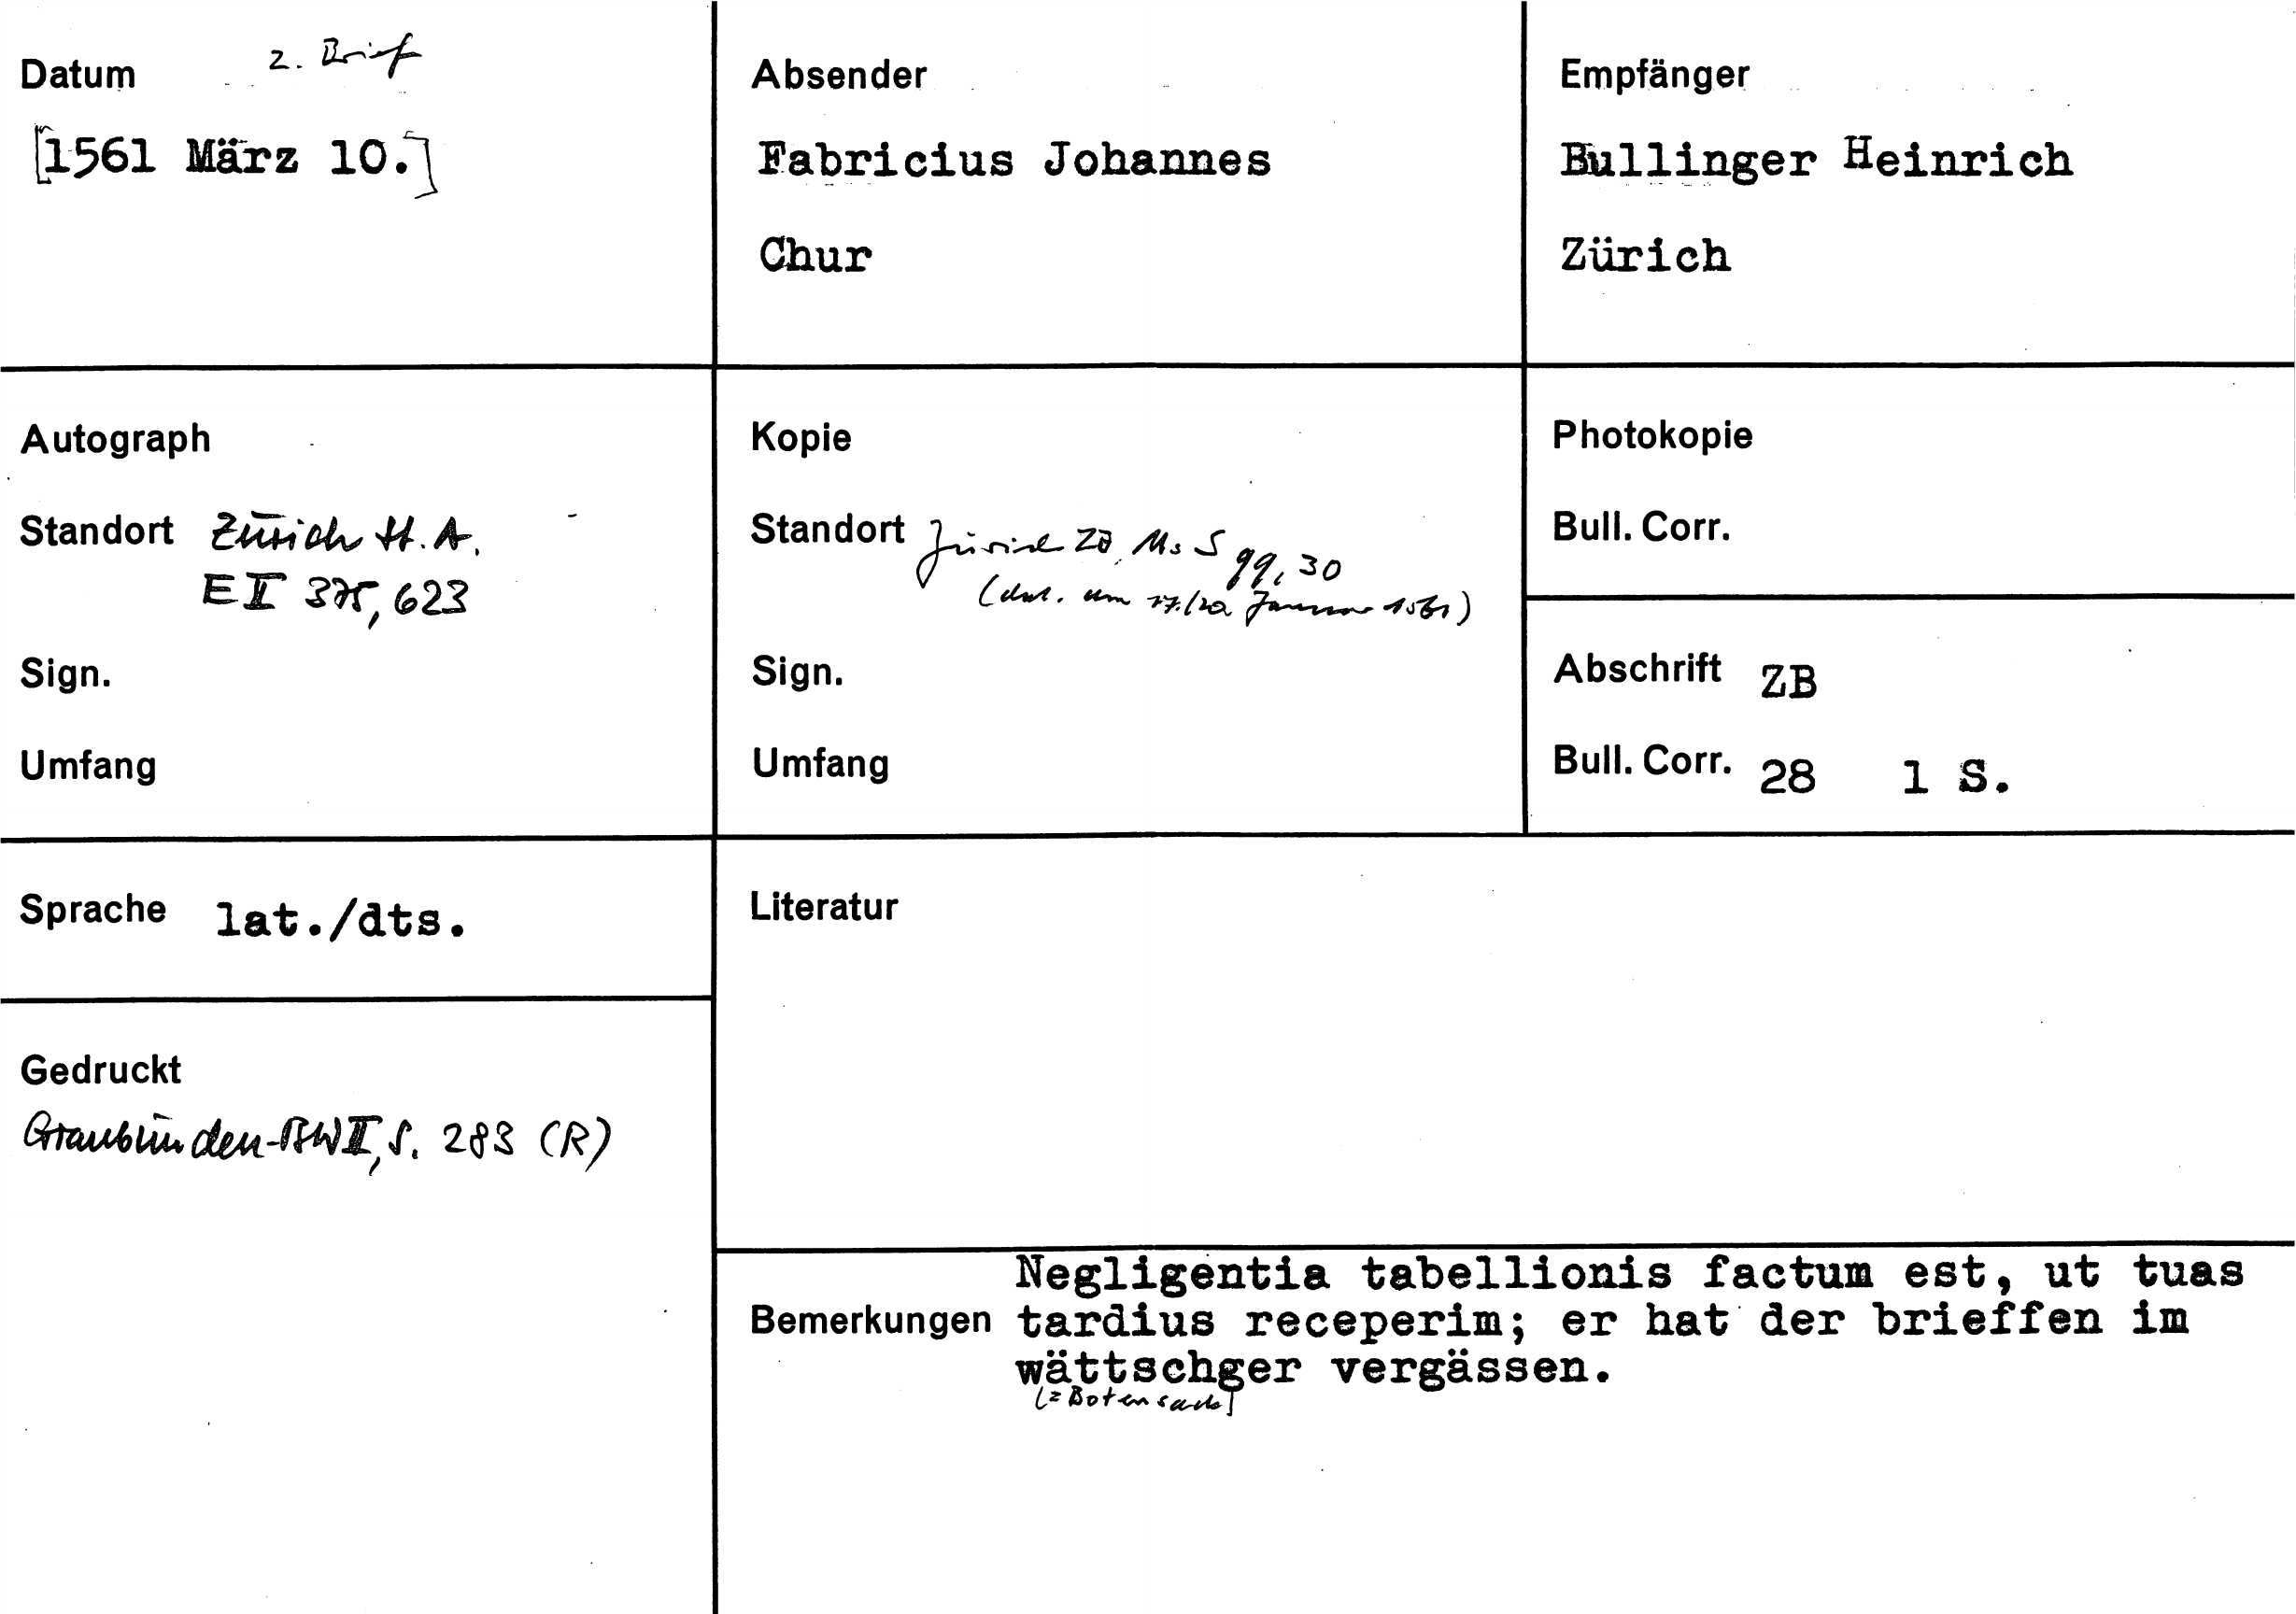 Datum 2. Brief
[1561 März 10.]
Absender
Fabricius Johannes
Chur
Empfänger
Bullinger Heinrich
Zürich
Autograph
Standort Zürich St. A.
E II 375, 623
Sign.
Umfang
Kopie
Standort Zürich ZB, Ms S 99, 30
(dat. um 17./20. Januar 1561)
Sign.
Umfang
Photokopie
Bull. Corr.
Abschrift ZB
Bull. Corr. 28 1 S.
Sprache lat./dts.
Gedruckt
Graubünden-BW II, S. 283 (R)
Literatur
Bemerkungen
Negligentia tabellionis factum est, ut tuas
tardius receperim; er hat der brieffen im
wättschger vergässen.
[= Botensack]